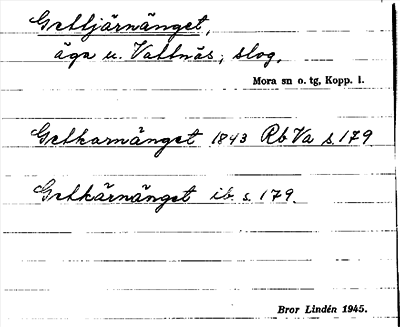 Gettjärnänget,
äga u. Vattnäs, slog.
Mora sn o. tg, Kopp. l.
Getkarnänget 1843 Rb Va s. 179
Getkärnänget ib. s. 179.
Bror Lindén 1945.